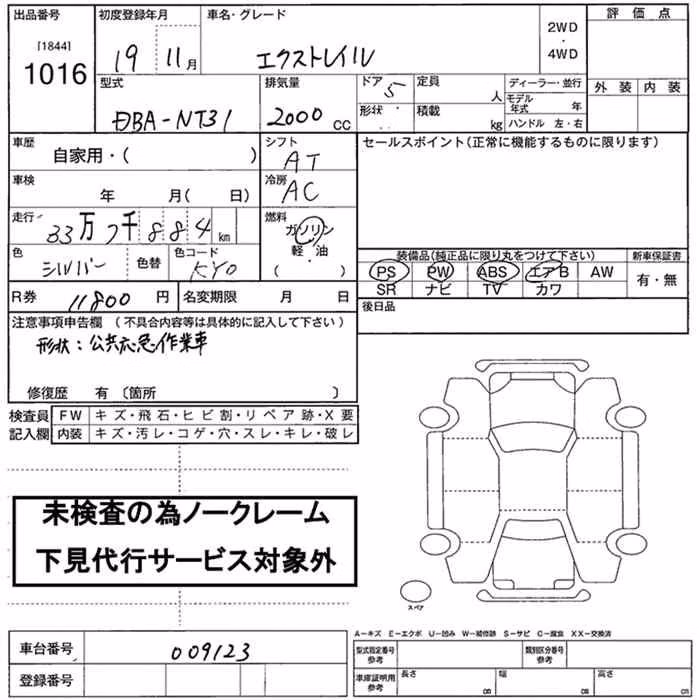 出品番号 初度登録年月 車名・グレード 評価点
[1844]
1016
19 11月 エクストレイル 2WD
・
4WD
外装 内装
型式 排気量 ドア 5 定員 人 ディーラー・並行
DBA-NT31 2000 CC 形状 積載 kg モデル年式 年
ハンドル 左・右
車歴 自家用・( ) シフト AT セールスポイント(正常に機能するものに限ります)
車検 年 月( 日) 冷房 AC
走行 33万7千884km 燃料 ガソリン
軽・油
( )
色 シルバー 色替 色コード KY0
装備品(純正品に限り丸をつけて下さい) 新車保証書
PS PW ABS エアB AW 有・無
SR ナビ TV カワ
R券 11800円 名変期限 月 日 後日品
注意事項申告欄 (不具合内容等は具体的に記入して下さい)
形状:公共応急作業車
修復歴 有 〔箇所 〕
検査員 FW キズ・飛石・ヒビ割・リペア跡・X要
記入欄 内装 キズ・汚レ・コゲ・穴・スレ・キレ・破レ
未検査の為ノークレーム
下見代行サービス対象外
スペア
A−キズ E−エクボ U−凹み W−補修跡 S−サビ C−腐食 XX−交換済
車台番号 009123 型式指定番号 参考 類別区分番号 参考
登録番号 車庫証明用 参考 長さ cm 幅 cm 高さ cm